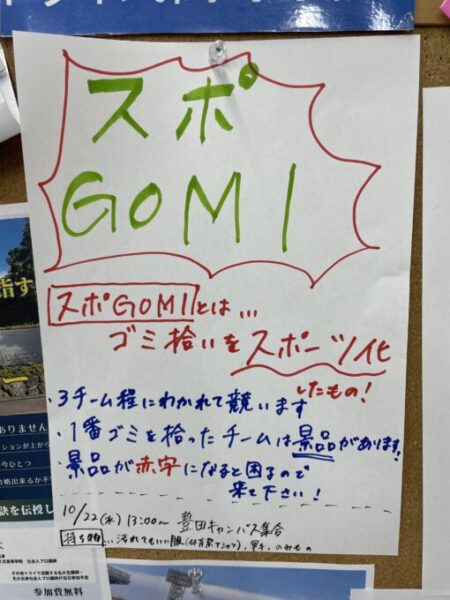 スポ
GOMI
スポGOMIとは…
ゴミ拾いをスポーツ化
したもの!
・3チーム程にわかれて競います
・1番ゴミを拾ったチームは景品があります。
・景品が赤字になると困るので
来て下さい!
10/22(水) 13:00〜 豊田キャンパス集合
持ち物…汚れてもいい服(体育祭Tシャツ)、軍手、のみもの
指す
ありません
今ひとつ
訣を伝授し
参加費無料